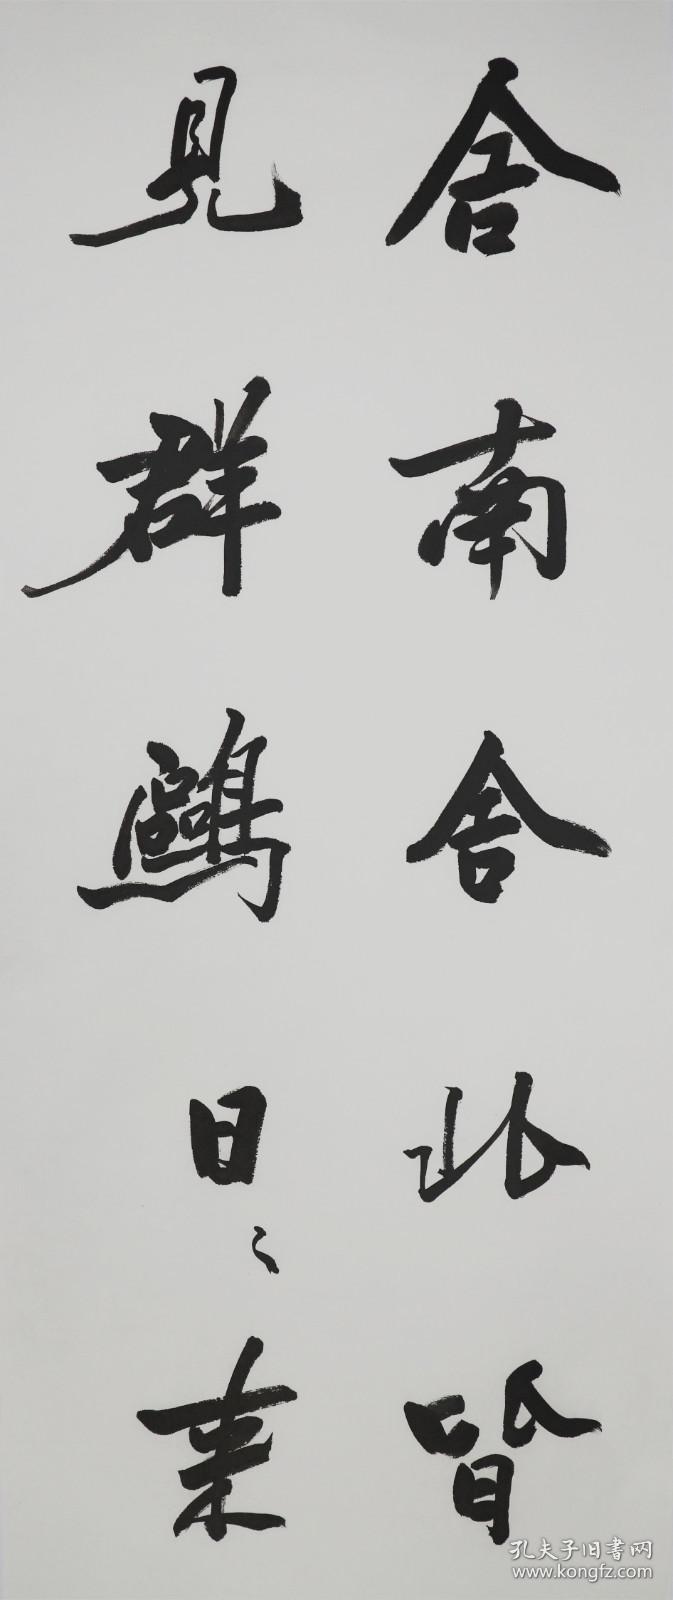 舍南舍北皆
見群鷗日〻来
孔夫子旧書网
www.kongfz.com